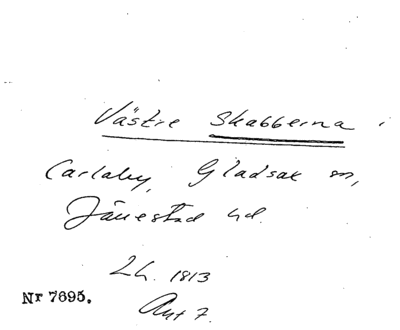 Västre Skabberna i
Carlaby, Gladsax sn,
Järrestad hd.
Lh. 1813
Nr 7695.
Akt 7.